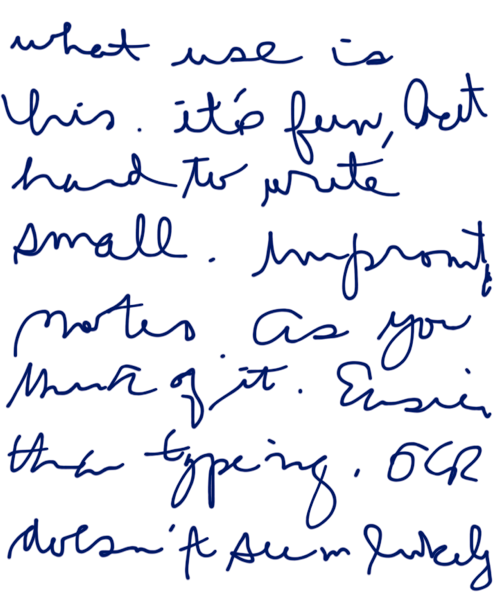 what use is
this. it's fun, but
hard to write
small. Imprompt
notes. as you
think of it. Easier
than typing. OCR
doesn't seem likely